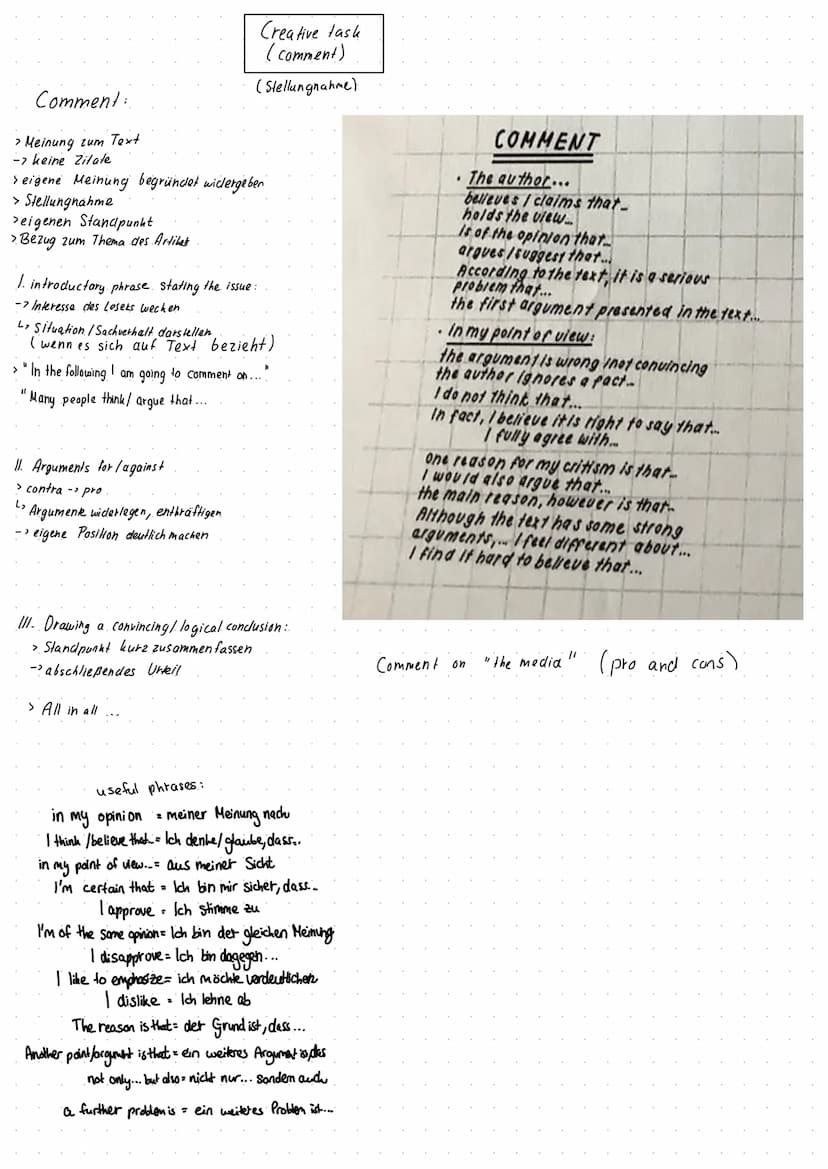 Creative task
(comment)
(Stellungnahme)
Comment:
> Meinung zum Text
-> keine Zitate
> eigene Meinung begründet widergeben
> Stellungnahme
> eigenen Standpunkt
> Bezug zum Thema des Artikel
I. introductory phrase stating the issue:
-> Interesse des Lesers wecken
↳ Situation/Sachverhalt darstellen
(wenn es sich auf Text bezieht)
> "In the following I am going to comment on..."
"Many people think/ argue that...
II. Arguments for/against
> contra -> pro
↳ Argumente widerlegen, enthräftigen
-> eigene Position deutlich machen
III. Drawing a convincing/logical conclusion:
> Standpunkt kurz zusammenfassen
-> abschließendes Urteil
> All in all ...
COMMENT
• The author...
believes / claims that...
holds the view...
is of the opinion that...
argues /suggest that...
According to the text, it is a serious
problem that...
the first argument presented in the text...
• In my point of view:
the argument is wrong /not convincing
the author ignores a fact...
I do not think that...
In fact, I believe it is right to say that...
I fully agree with...
one reason for my critism is that...
I would also argue that...
the main reason, however is that...
Although the text has some strong
arguments,... I feel different about...
I find it hard to believe that...
Comment on "the media" (pro and cons)
useful phrases:
in my opinion = meiner Meinung nach
I think /believe that... = Ich denke/glaube, dass...
in my point of view... = aus meiner Sicht
I'm certain that = Ich bin mir sicher, dass...
I approve = Ich stimme zu
I'm of the same opinion = Ich bin der gleichen Meinung
I disapprove = Ich bin dagegen...
I like to emphasize = ich möchte verdeutlichen
I dislike = Ich lehne ab
The reason is that = der Grund ist, dass...
Another point/argument is that = ein weiteres Argument is, das
not only... but also = nicht nur... sondern auch
a further problem is = ein weiteres Problem ist...